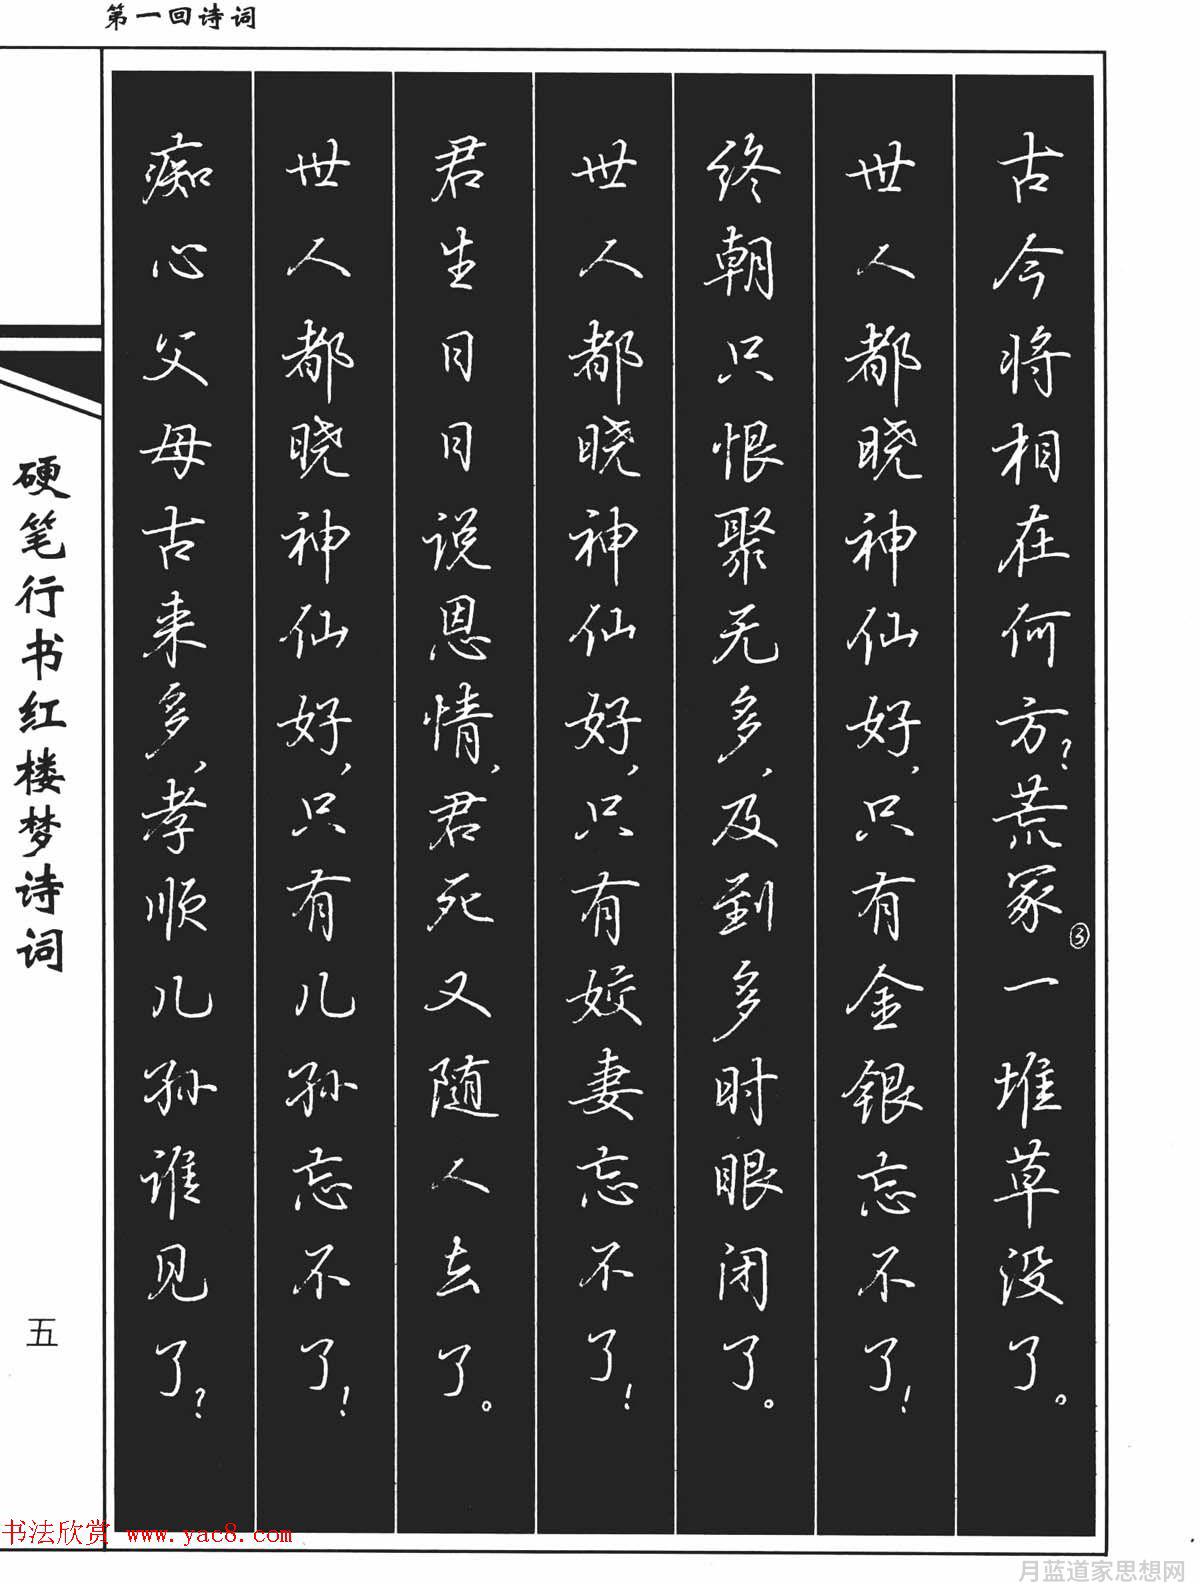 第一回诗词
古今将相在何方？荒冢③一堆草没了。
世人都晓神仙好，只有金银忘不了！
终朝只恨聚无多，及到多时眼闭了。
世人都晓神仙好，只有姣妻忘不了！
君生日日说恩情，君死又随人去了。
世人都晓神仙好，只有儿孙忘不了！
痴心父母古来多，孝顺儿孙谁见了？
硬笔行书红楼梦诗词
五
书法欣赏 www.yac8.com
月蓝道家思想网